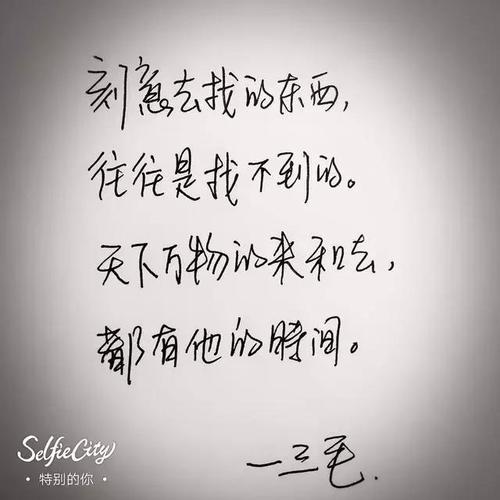 刻意去找的东西,
往往是找不到的。
天下万物的来和去,
都有他的時间。
—三毛.
SelfieCity
·特别的你·